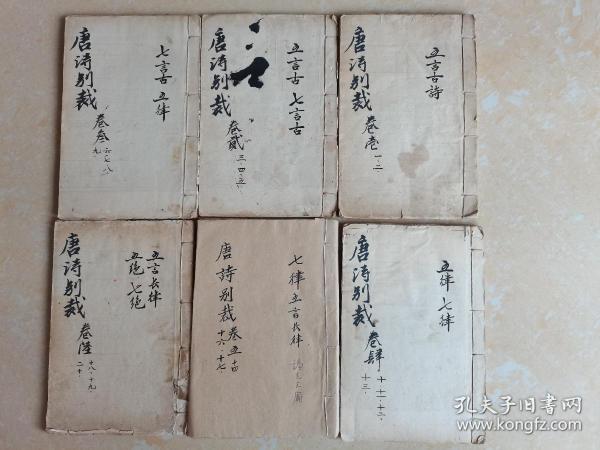 五言古詩
唐诗别裁 卷壹
一·二
五言古 七言古
唐诗别裁 卷貳
三·四·五·
七言古 五律
唐诗别裁 卷叁
六·七·八
九
五律 七律
唐诗别裁 卷肆
十·十一·十二·
十三·
七律 五言长律
唐詩别裁 卷五 十四
十六·十七·
五言长律
五绝 七绝
唐诗别裁 卷陸
十八·十九·
二十
孔夫子旧书网
kongfz.com